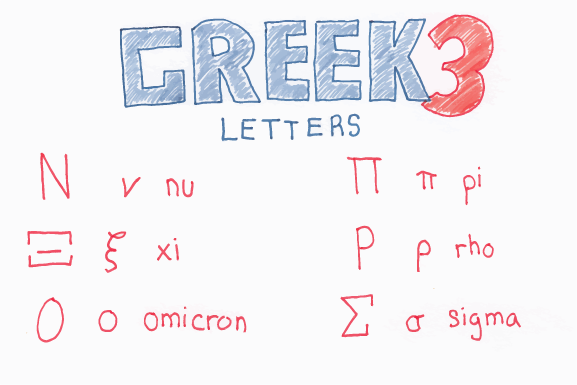 GREEK 3
LETTERS
Ν ν nu
Ξ ξ xi
Ο ο omicron
Π π pi
Ρ ρ rho
Σ σ sigma